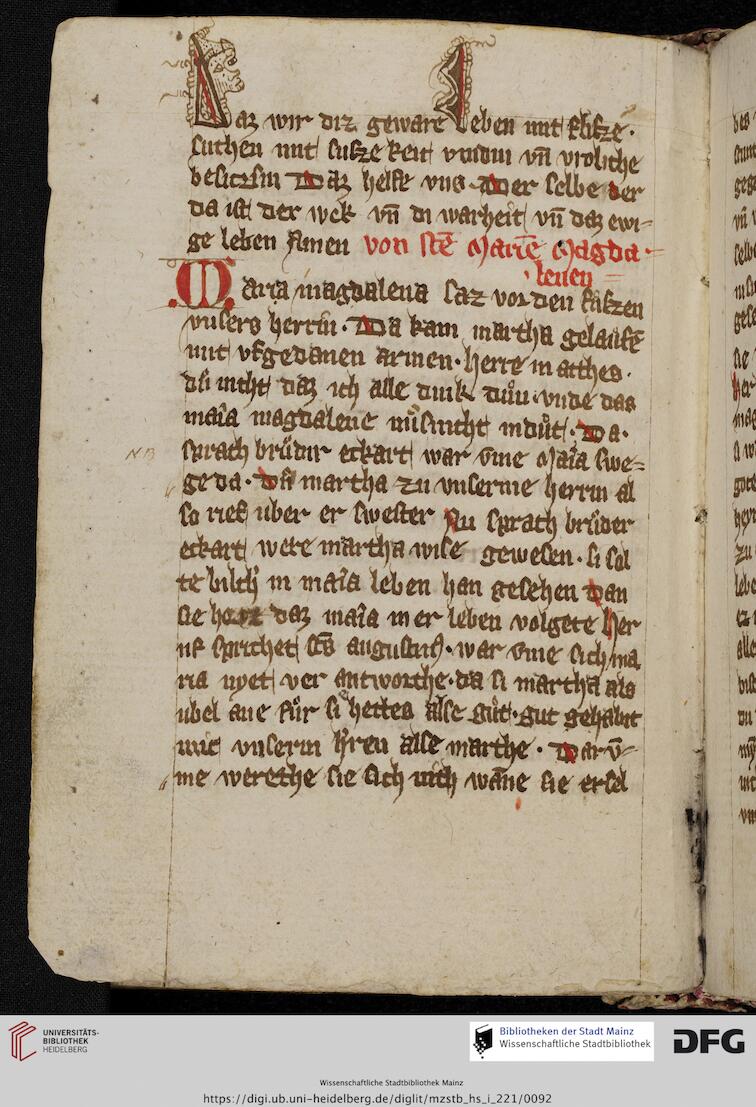 Daz wir diz geware leben mit flisze.
suchen mit susze keit vindin vn̄ vroliche
besitzsin Daz helfe vns Der selbe der
da ist der wek vn̄ di warheit vn̄ daz ewi-
ge leben Amen von sc̄te Marie Magda-
lenen
Maria magdalena saz vor den fůszen
vnsers herrin. Da kam martha gelaufē
mit vfgedanen armen. herre in acthes.
dů nicht daz ich alle dink důn vnde das
maīa magdalene nicht indůt. Da.
NB
sprach brůdir eckart war v̄me Maīa swe-
ge da. Dā martha zu vnserme herrin al
so rief uber er swester Nu sprach brůder
eckart were martha wise gewesen. si sol
te bilch in maīa leben han gesehen Dan
sie daz maīa in er leben volgete her
uf sprichet sc̄s augustin9. war v̄me sich ma
ria nyet ver antworthe. da si martha als
ubel ane fůr si hettes alse gůt. gut gehabit
wit vnserin h̄ren alse marthe. War v̄-
me werethe sie sich nich wāne sie
UNIVERSITÄTS-
BIBLIOTHEK
HEIDELBERG
Bibliotheken der Stadt Mainz
Wissenschaftliche Stadtbibliothek
DFG
Wissenschaftliche Stadtbibliothek Mainz
https://digi.ub.uni-heidelberg.de/diglit/mzstb_hs_i_221/0092